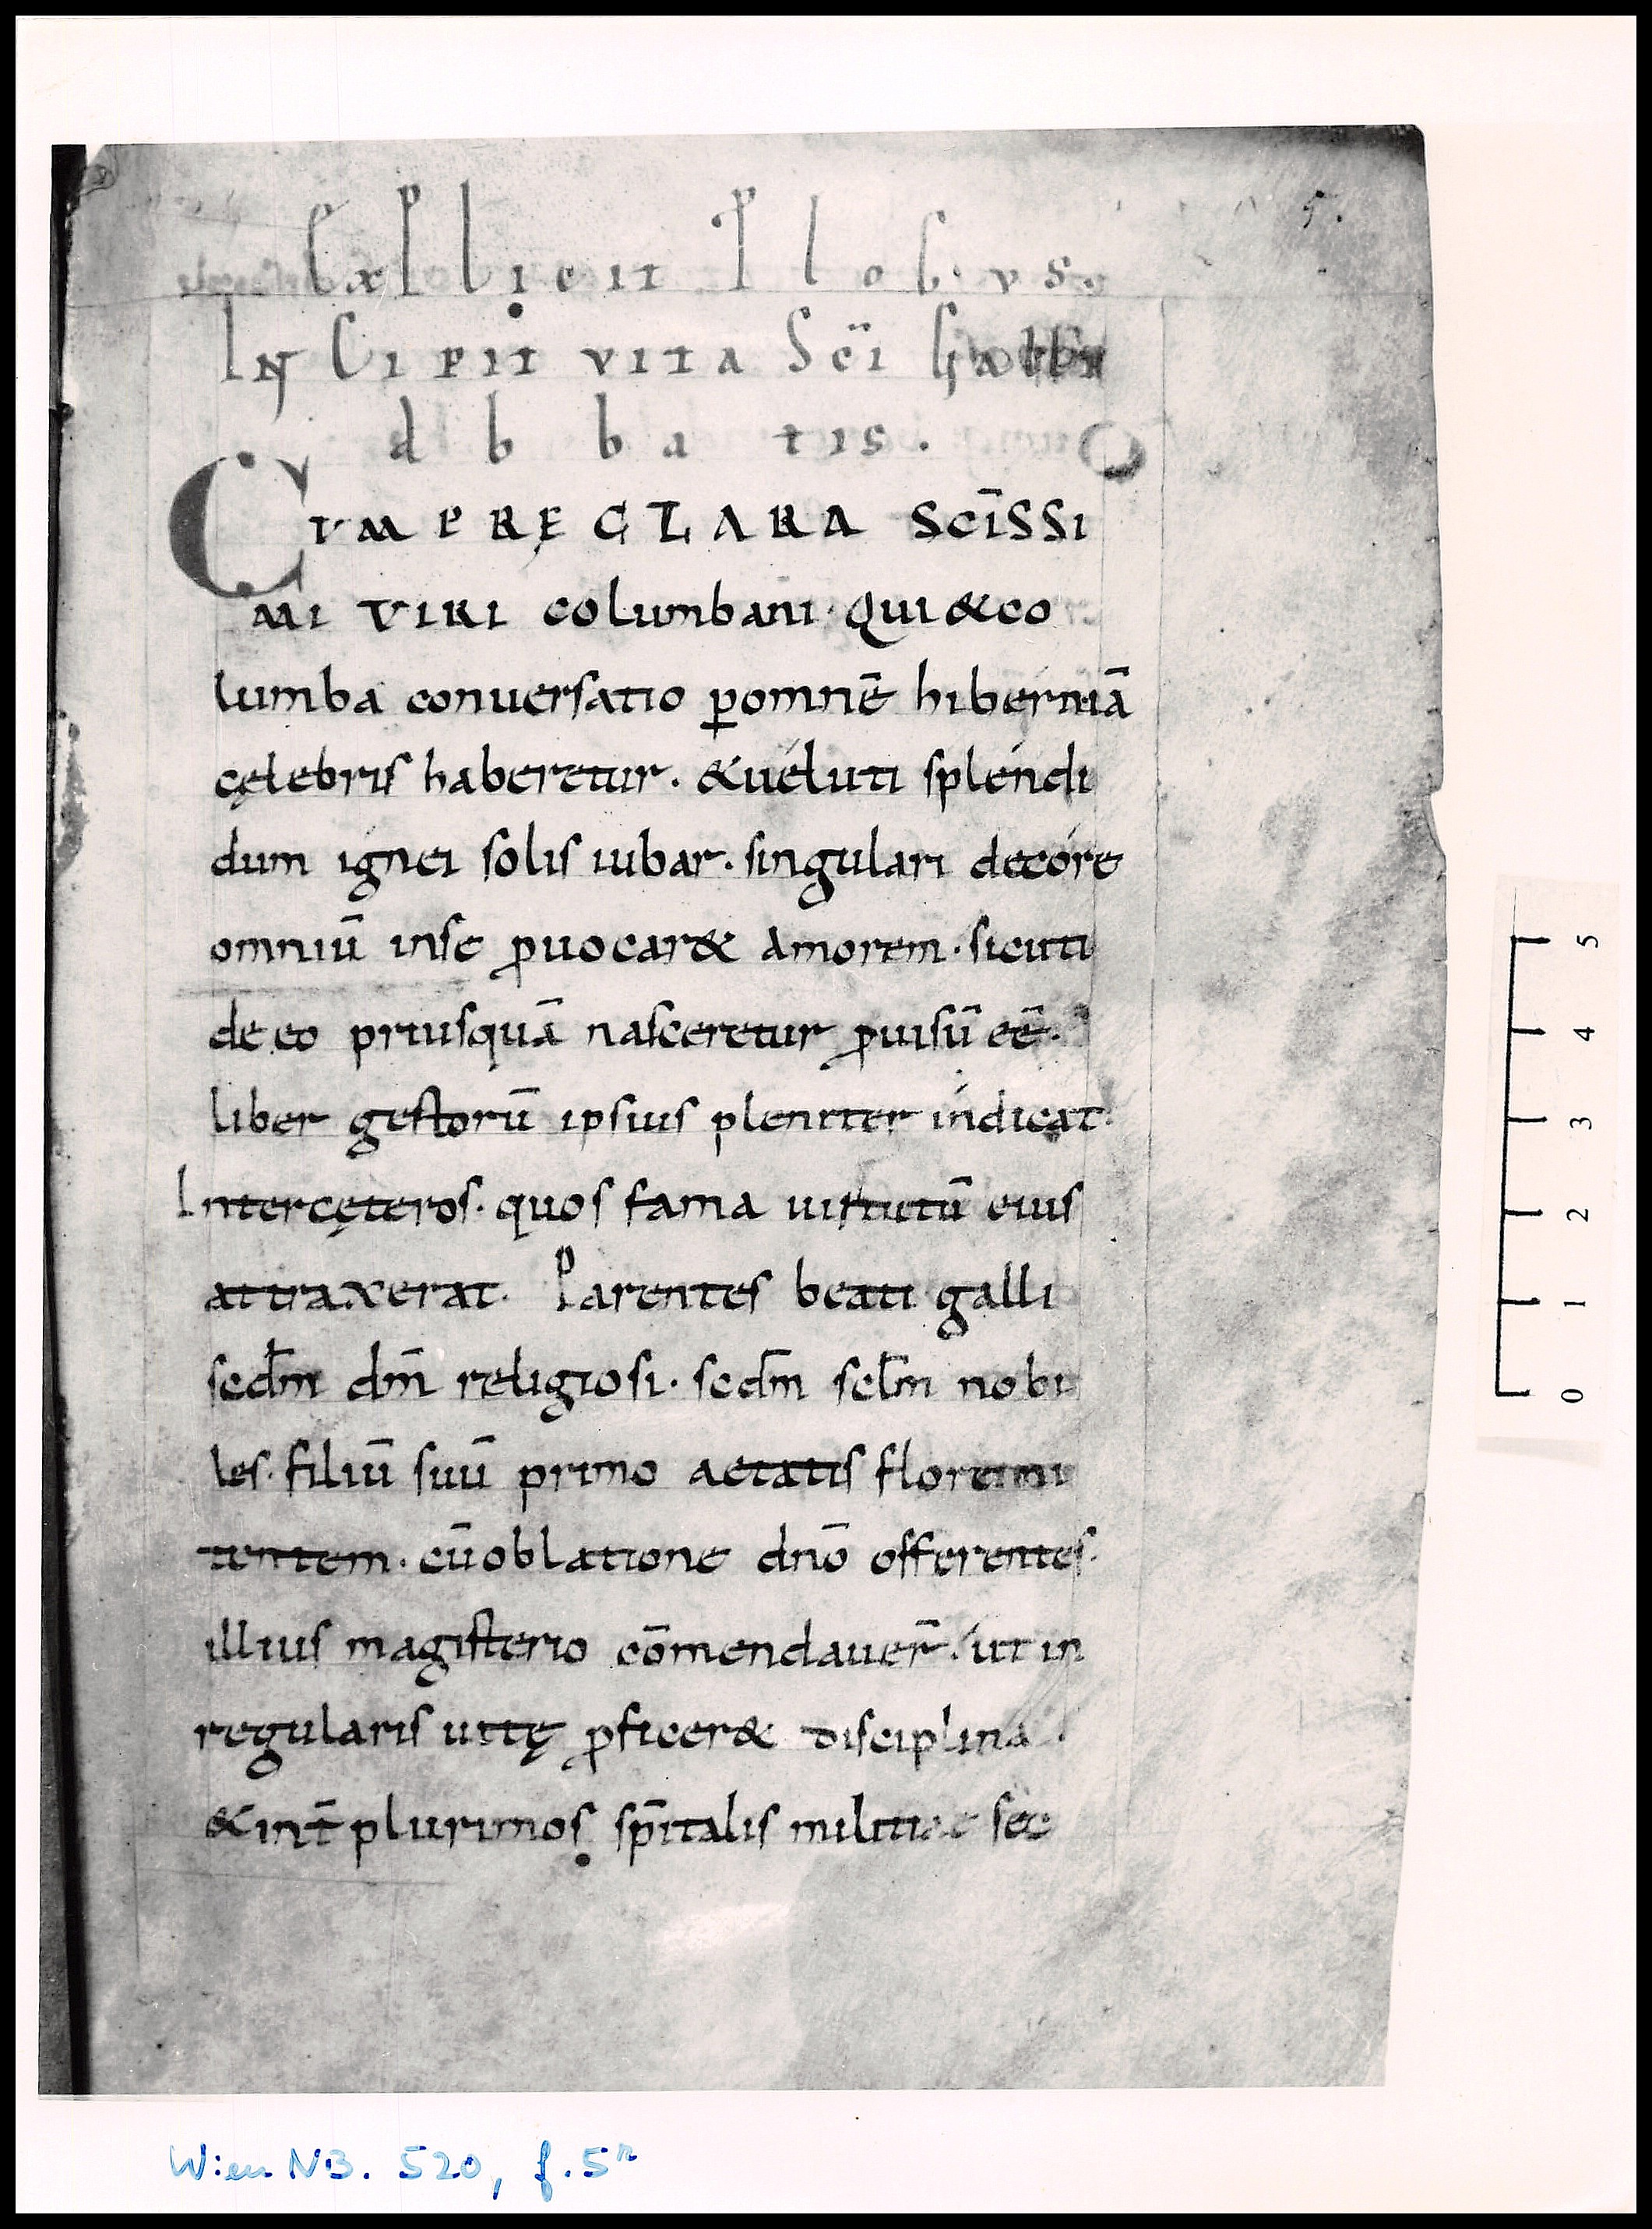 5.
Explicit Plogus.
INCipit vita Scī Galli
abbatis.
CUM PRĘCLARA SCĪSSI
MI VIRI columbani· Qui & co
lumba conuersatio ꝑomnē hiberniā
cęlebris haberetur· &uéluti spléndi
dum ignei solis iubar· singulari decóre
omniū inse ꝓuocar& Amorem· sicuti
de eo priusquā nasceretur ꝓuisū eē·
liber gestorū ipsius pleniter índicat·
Intercęteros· quos fama uirtutū eius
attraxerat· Parentes beati galli
scdm̄ dm̄ religiosi· scdm̄ sclm̄ nobi
les· filiū suū primo aetatis flore
tentem· cūoblatione dnō offerentes·
illius magisterio cōmendauer̄· út in
regularis uitę ꝓficer& disciplina·
&int̄ plurimos sp̄italis militiae sec
Wien NB. 520, f. 5r
5
4
3
2
1
0